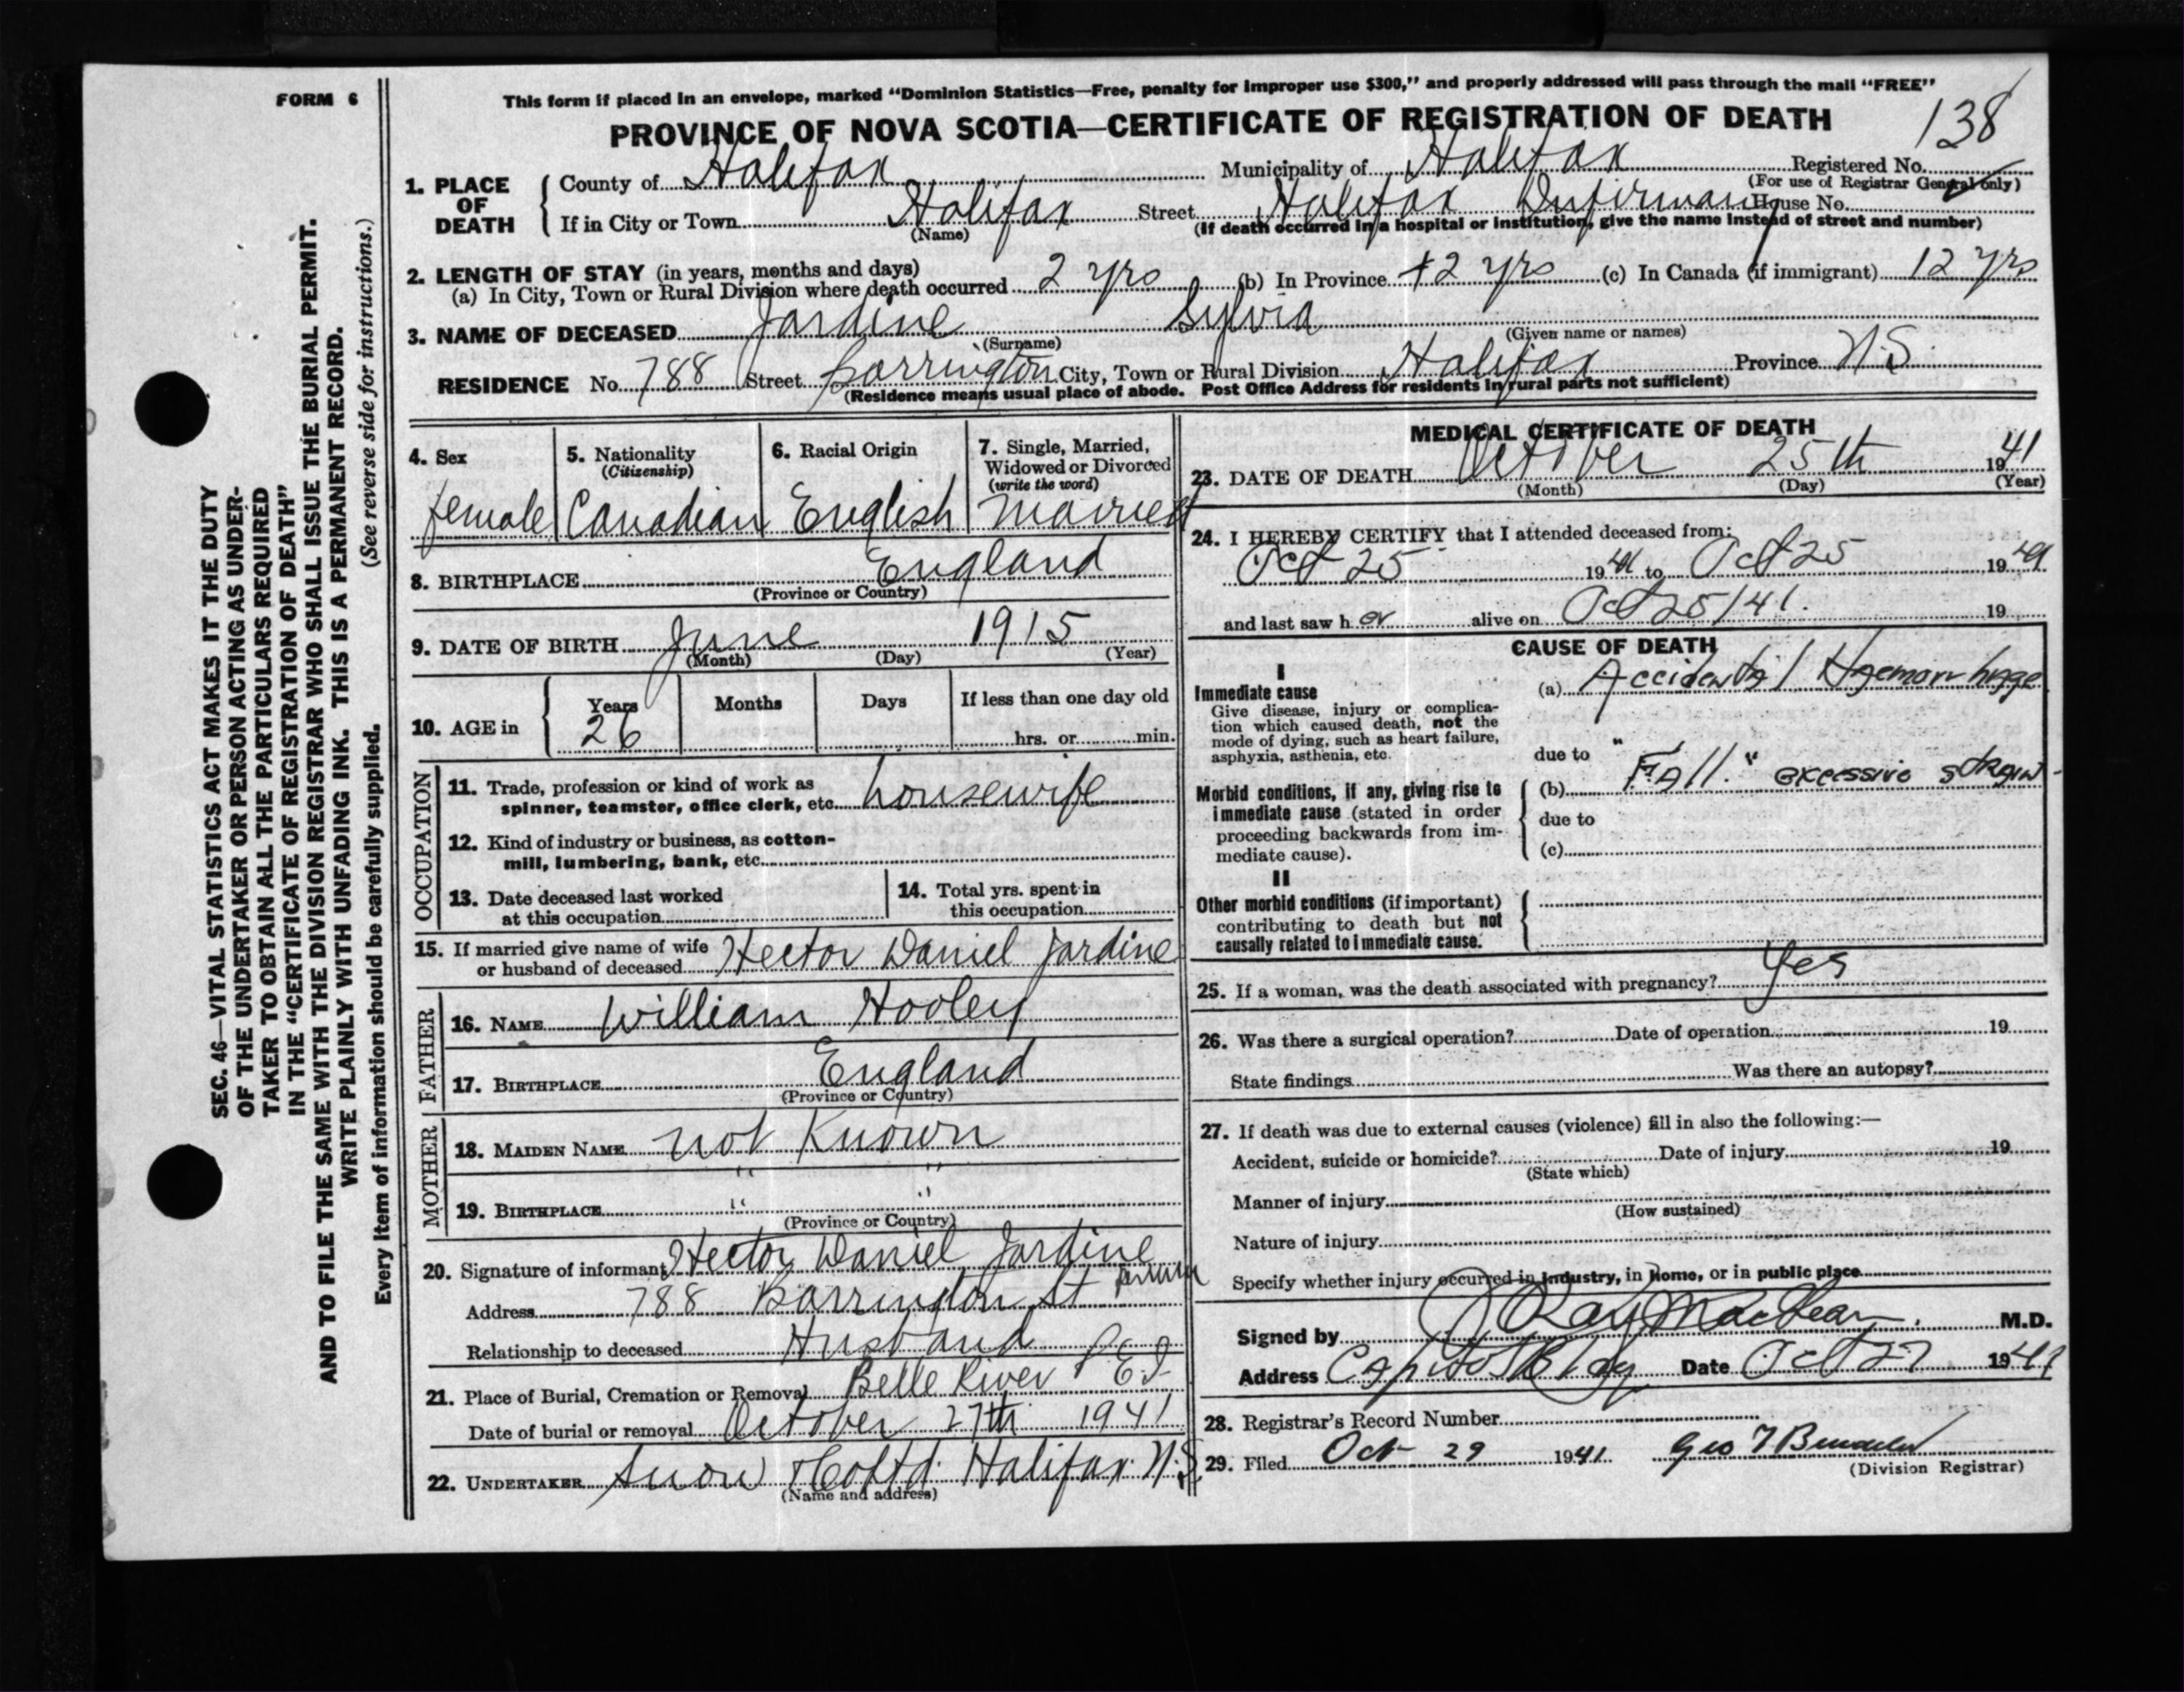 FORM 6
This form if placed in an envelope, marked "Dominion Statistics—Free, penalty for improper use $300," and properly addressed will pass through the mail "FREE"
PROVINCE OF NOVA SCOTIA—CERTIFICATE OF REGISTRATION OF DEATH
138
1. PLACE OF DEATH
County of Halifax Municipality of Halifax Registered No.
(For use of Registrar General only)
If in City or Town Halifax Street Halifax Infirmary House No.
(Name) (If death occurred in a hospital or institution, give the name instead of street and number)
2. LENGTH OF STAY (in years, months and days)
(a) In City, Town or Rural Division where death occurred 2 yrs (b) In Province 12 yrs (c) In Canada (if immigrant) 12 yrs
3. NAME OF DECEASED Jardine Sylvia
(Surname) (Given name or names)
RESIDENCE No. 788 Street Barrington City, Town or Rural Division Halifax Province N.S.
(Residence means usual place of abode. Post Office Address for residents in rural parts not sufficient)
4. Sex
female
5. Nationality
(Citizenship)
Canadian
6. Racial Origin
English
7. Single, Married,
Widowed or Divorced
(write the word)
Married
8. BIRTHPLACE England
(Province or Country)
9. DATE OF BIRTH June 1915
(Month) (Day) (Year)
10. AGE in
Years Months Days If less than one day old
26 hrs. or min.
OCCUPATION
11. Trade, profession or kind of work as
spinner, teamster, office clerk, etc. housewife
12. Kind of industry or business, as cotton-
mill, lumbering, bank, etc.
13. Date deceased last worked
at this occupation
14. Total yrs. spent in
this occupation
15. If married give name of wife
or husband of deceased Hector Daniel Jardine
FATHER
16. NAME William Hooley
17. BIRTHPLACE England
(Province or Country)
MOTHER
18. MAIDEN NAME not Known
" "
19. BIRTHPLACE " "
(Province or Country)
20. Signature of informant Hector Daniel Jardine
Address 788 Barrington St
Relationship to deceased Husband
21. Place of Burial, Cremation or Removal Belle River P E I
Date of burial or removal October 27th 1941
22. UNDERTAKER Snow & Co Ltd. Halifax N.S.
(Name and address)
MEDICAL CERTIFICATE OF DEATH
23. DATE OF DEATH October 25th 1941
(Month) (Day) (Year)
24. I HEREBY CERTIFY that I attended deceased from:
Oct 25 1941 to Oct 25 1941
and last saw her alive on Oct 25/41. 19
CAUSE OF DEATH
I
Immediate cause
Give disease, injury or complica-
tion which caused death, not the
mode of dying, such as heart failure,
asphyxia, asthenia, etc.
(a) Accidental Haemorrhage
due to
Morbid conditions, if any, giving rise to
immediate cause (stated in order
proceeding backwards from im-
mediate cause).
(b) "Fall." excessive strain
due to
(c)
II
Other morbid conditions (if important)
contributing to death but not
causally related to immediate cause.
25. If a woman, was the death associated with pregnancy? Yes
26. Was there a surgical operation? Date of operation 19
State findings Was there an autopsy?
27. If death was due to external causes (violence) fill in also the following:—
Accident, suicide or homicide? Date of injury 19
(State which)
Manner of injury
(How sustained)
Nature of injury
Specify whether injury occurred in industry, in home, or in public place
Signed by J Ray MacLean M.D.
Address Capitol Bldg Date Oct 27 1941
28. Registrar's Record Number
29. Filed Oct 29 1941 Geo
(Division Registrar)
SEC. 46—VITAL STATISTICS ACT MAKES IT THE DUTY
OF THE UNDERTAKER OR PERSON ACTING AS UNDER-
TAKER TO OBTAIN ALL THE PARTICULARS REQUIRED
IN THE "CERTIFICATE OF REGISTRATION OF DEATH"
AND TO FILE THE SAME WITH THE DIVISION REGISTRAR WHO SHALL ISSUE THE BURIAL PERMIT.
WRITE PLAINLY WITH UNFADING INK. THIS IS A PERMANENT RECORD.
Every item of information should be carefully supplied. (See reverse side for instructions.)